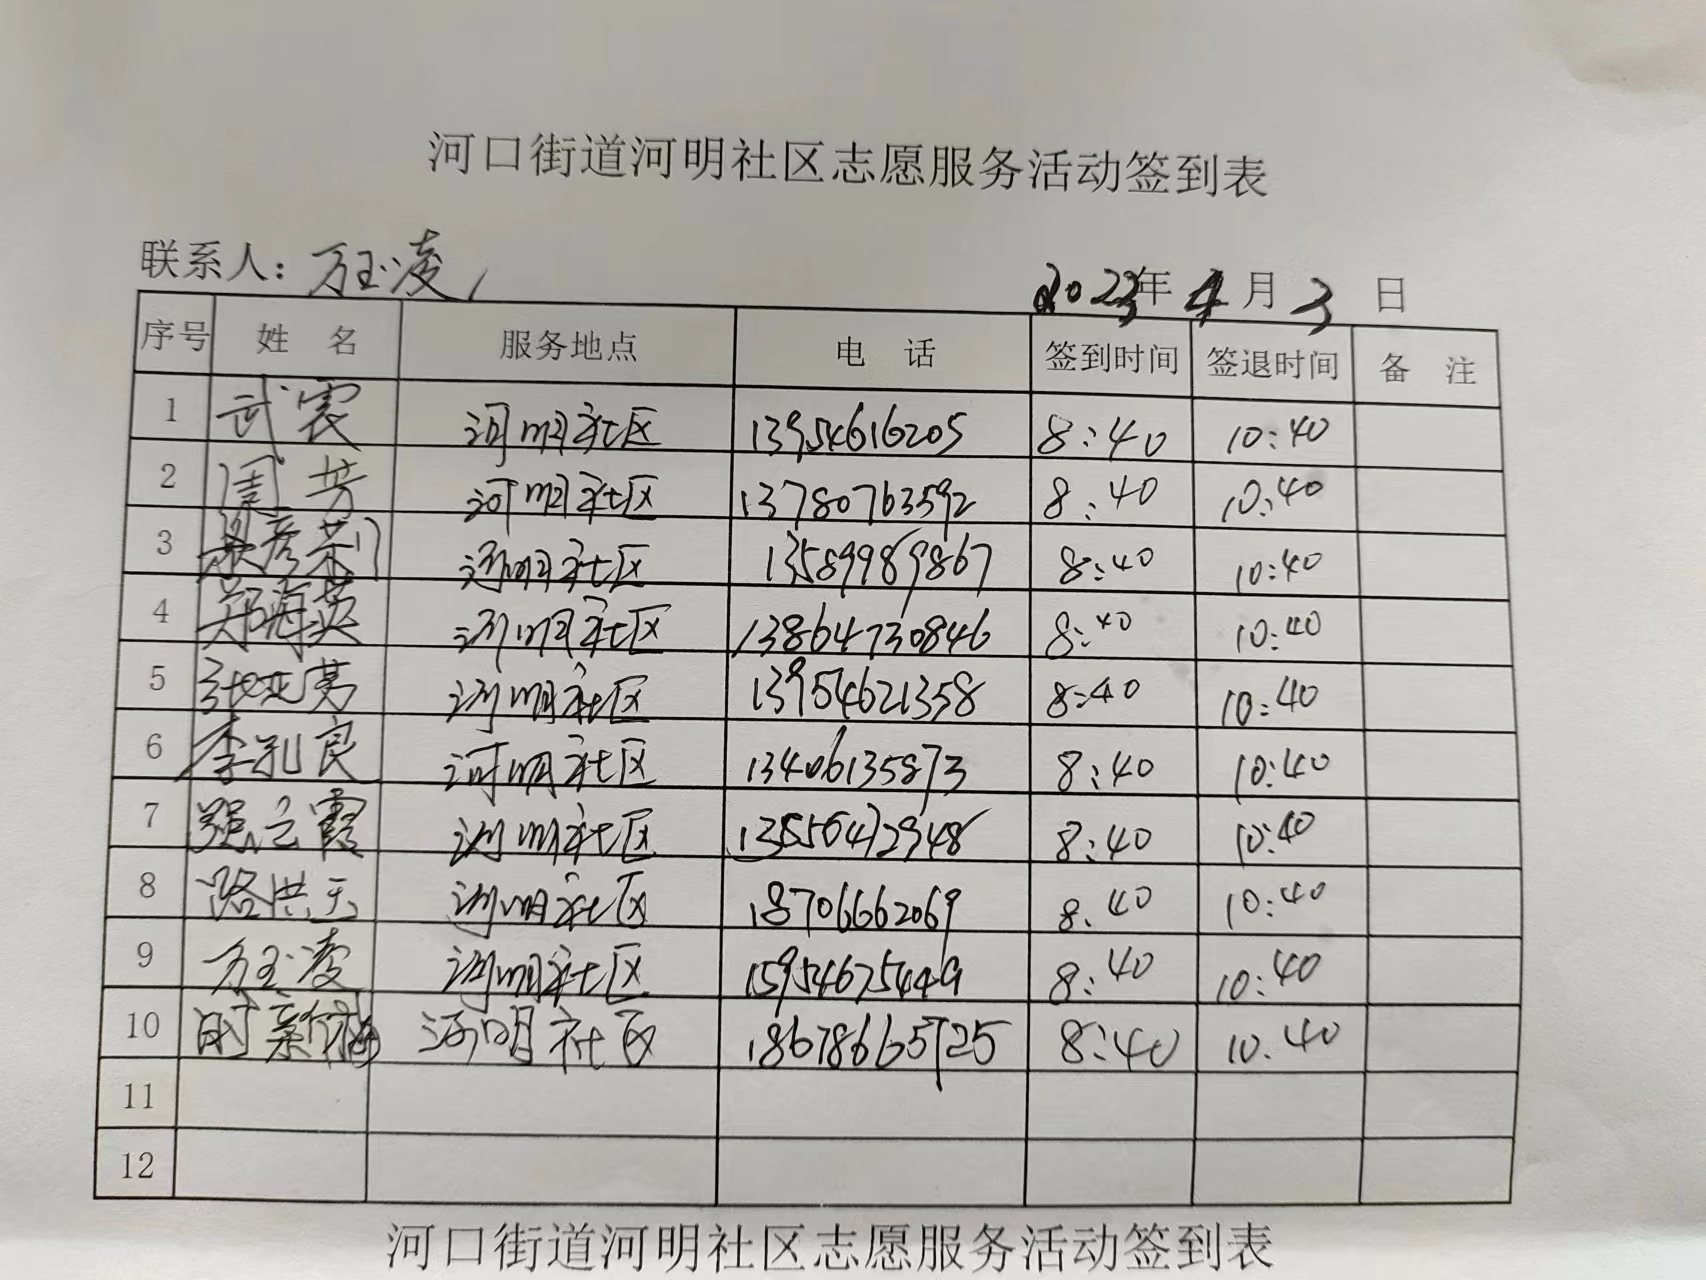 河口街道河明社区志愿服务活动签到表
联系人：万玉凌 2023年4月3日
序号 姓名 服务地点 电话 签到时间 签退时间 备注
1 武震 河明社区 13954616205 8:40 10:40
2 周芳 河明社区 13780763592 8:40 10:40
3 河明社区 13589989867 8:40 10:40
4 郑海英 河明社区 13864730846 8:40 10:40
5 河明社区 13954621358 8:40 10:40
6 李孔良 河明社区 13406135873 8:40 10:40
7 河明社区 8:40 10:40
8 路洪玉 河明社区 18706662069 8:40 10:40
9 万玉凌 河明社区 15954675449 8:40 10:40
10 时新梅 河明社区 18678665725 8:40 10:40
11
12
河口街道河明社区志愿服务活动签到表